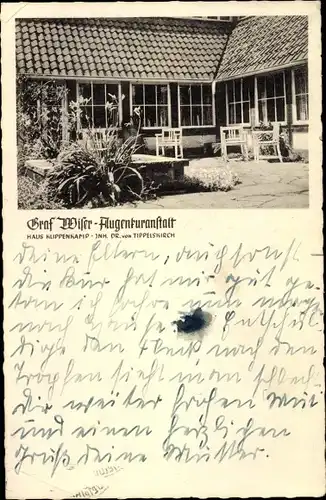 Graf Wiser-Augenkuranstalt
HAUS KLIPPENKAMP · INH. DR. VON TIPPELSKIRCH
deine Eltern, auch sonst
die Kur hat mir gut ge-
tan ich
nach Hause. Entschul-
dige den Fleck nach den
Tropfen sieht man schlecht
Dir weiter frohen Mut
und einen herzlichen
Gruß deine Mutter.